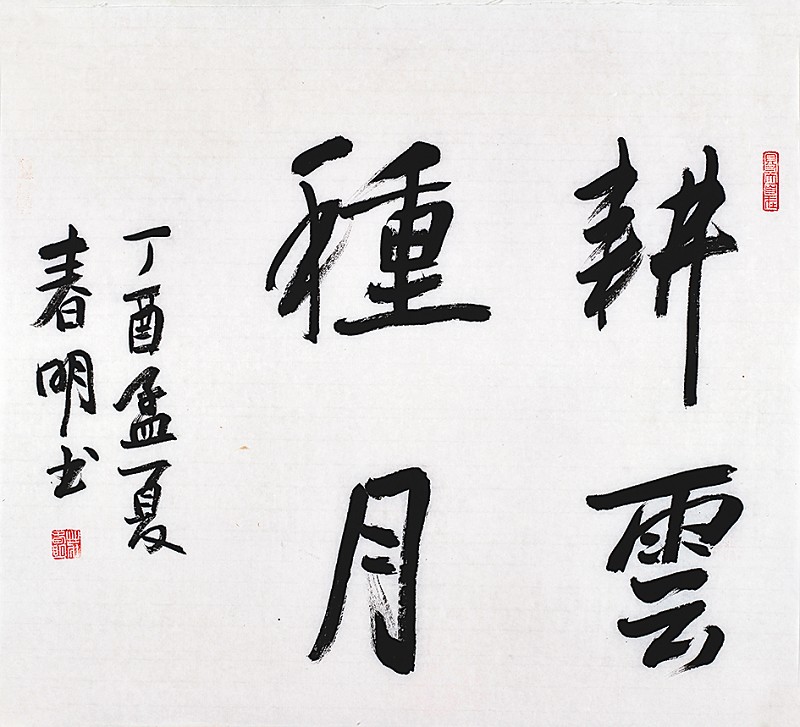 耕雲
種月
丁酉孟夏
春明书